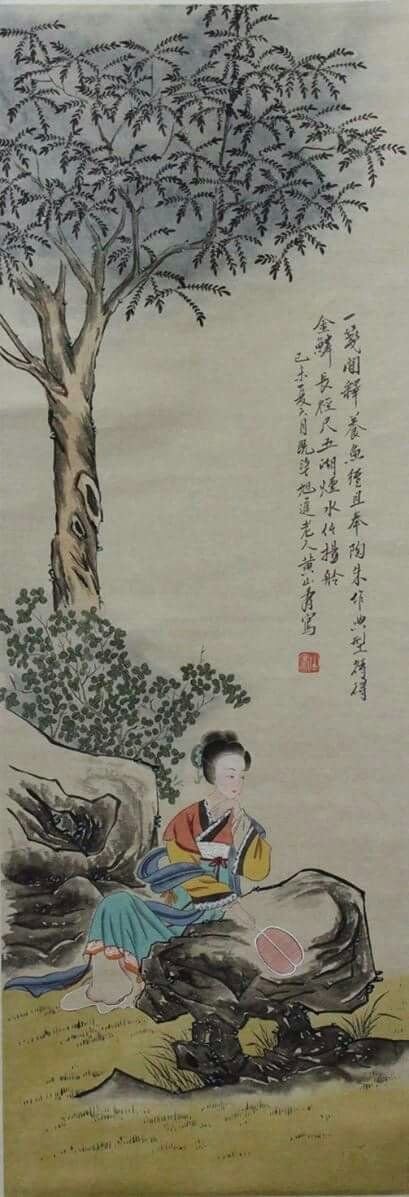 一閒釋養魚經且奉陶朱作典型待得
金鱗長徑尺五湖煙水任揚舲
己未夏六月既望旭遲老人黃山壽寫